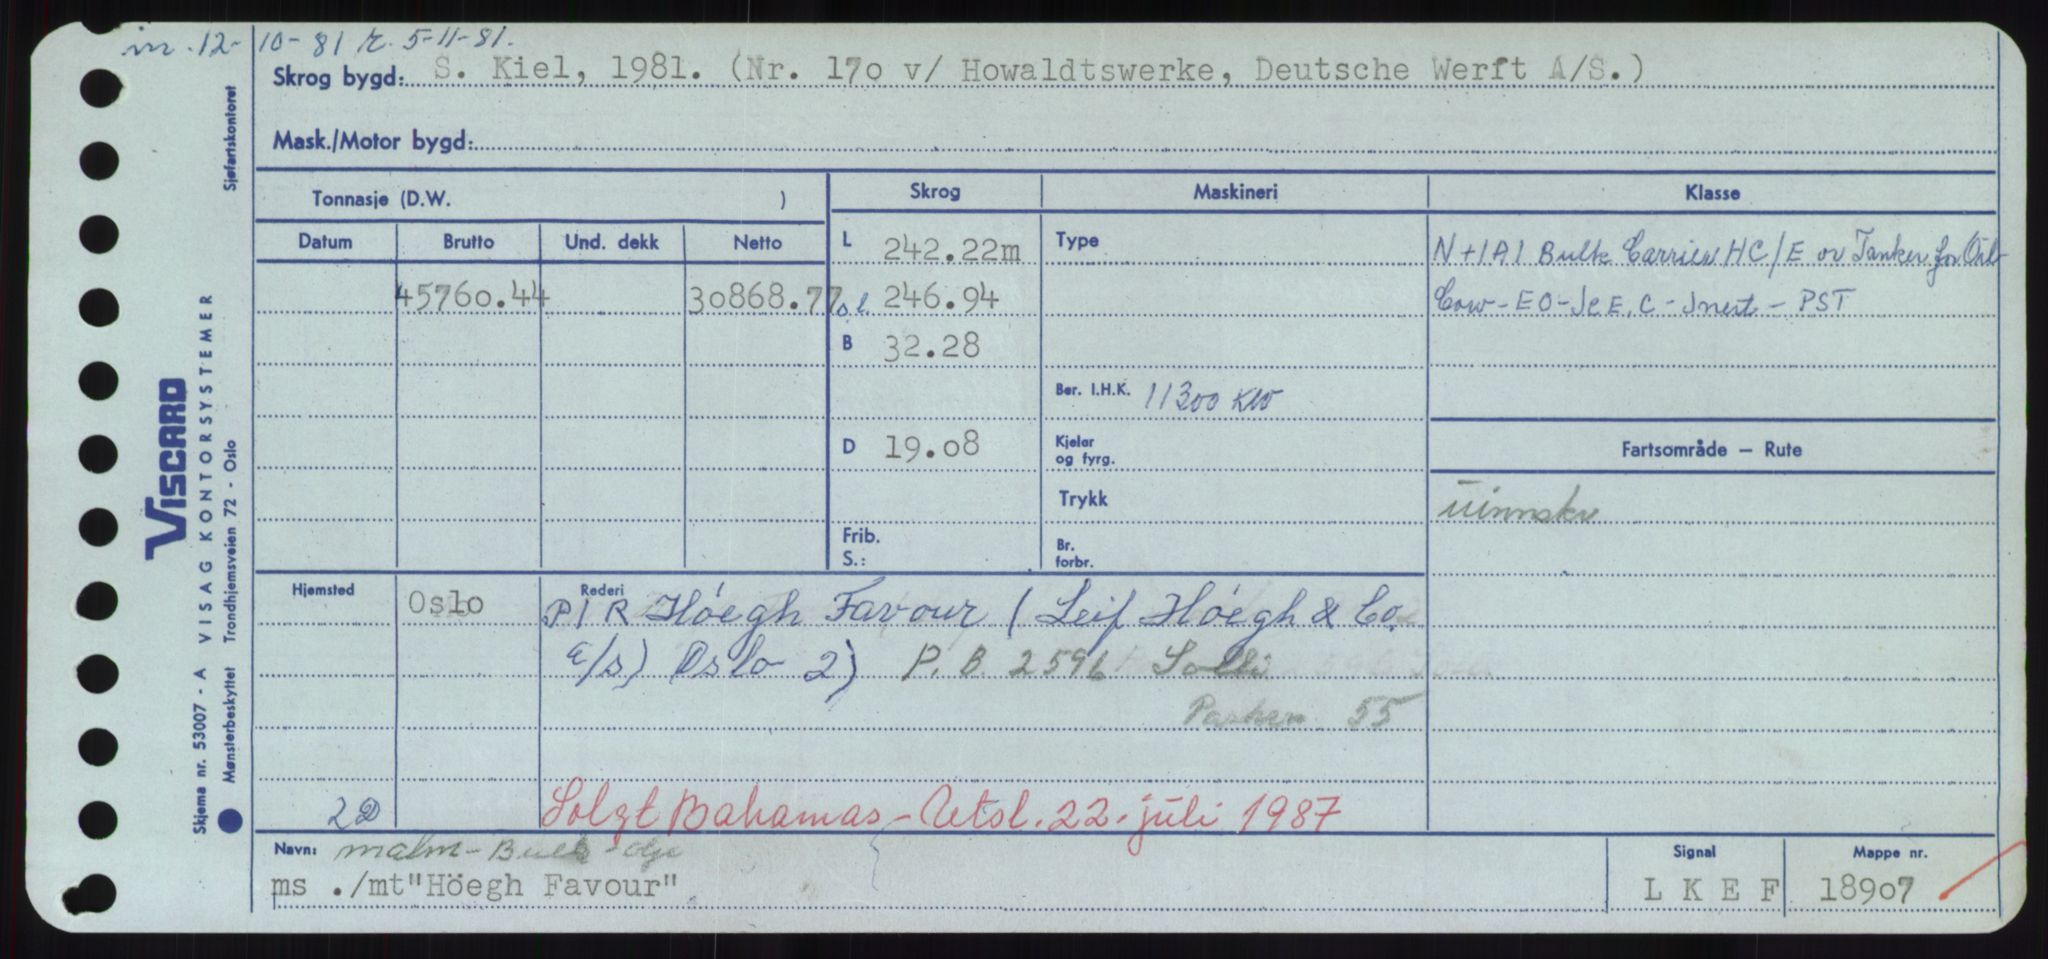 m. 12-10-81 r. 5-11-81.
Skrog bygd: S. Kiel, 1981. (Nr. 170 v/ Howaldtswerke, Deutsche Werft A/S.)
Mask./Motor bygd:
Tonnasje (D.W. )
Skrog Maskineri Klasse
Datum Brutto Und. dekk Netto
L 242.22m Type N+1A1 Bulk Carrier HC/E or Tanker for Oil
45760.44 30868.77 o.l. 246.94 Cow - EO - Ice, C - Inert - PST
B 32.28
Ber. I.H.K. 11300 KW
D 19.08 Kjelar og fyrg. Fartsområde — Rute
Trykk uinnskr
Frib. S.: Br. forbr.
Hjemsted Oslo Rederi P/R Höegh Favour (Leif Höegh & Co.
a/s) Oslo 2) P.B. 2596 Solli
55
2D Solgt Bahamas - Utsl. 22. juli 1987
Navn: malm-Bulk-olje Signal Mappe nr.
ms ./mt"Höegh Favour" L K E F 18907
Skjema nr. 53007 - A VISAG KONTORSYSTEMER
Mønsterbeskyttet Trondhjemsveien 72 - Oslo Sjøfartskontoret
VISCARD